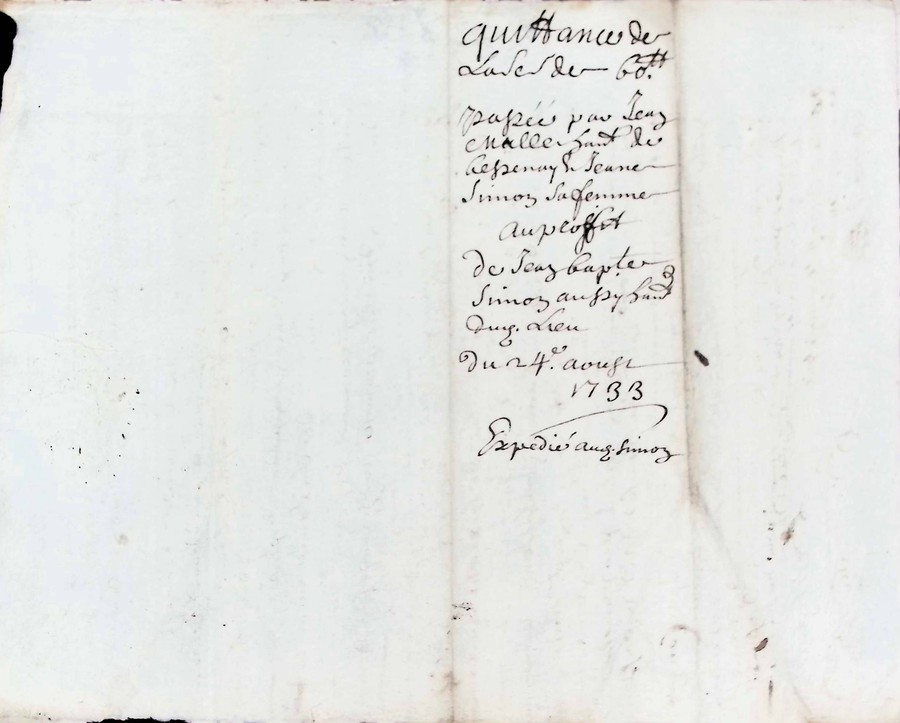 quittance de
La so᷒ de 60tt
passée par Jean
Malle hant de
& Jeanne
Simon sa femme
au proffit
de Jean bapte
Simon aussy hant
dud. Lieu
du 24e aoust
1733
Expedié aud. Simon